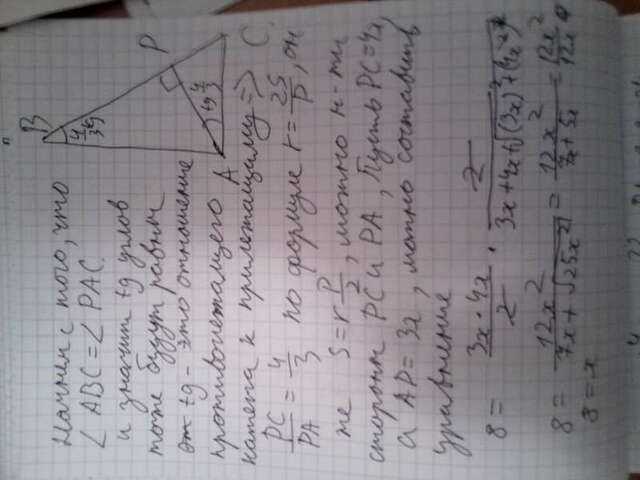 B
Начнем с того, что
∠ ABC = ∠ PAC.
4/3 tg
и значит tg углов
тоже будут равны
P
tg - это отношение
tg 4/3
противолежащего
A
катета к прилежащему =>
C
PC/PA = 4/3 по формуле r = 2S/P, он
же S = r P/2, можно н-ти
стороны PC и PA, Пусть PC = 4x,
а AP = 3x, можно составить
уравнение
8 = 3x · 4x / 2 · 2 / 3x + 4x + √(3x)² + (4x²)²
8 = 12x² / 7x + √25x² = 12x² / 7x + 5x = 12x² / 12x
8 = x